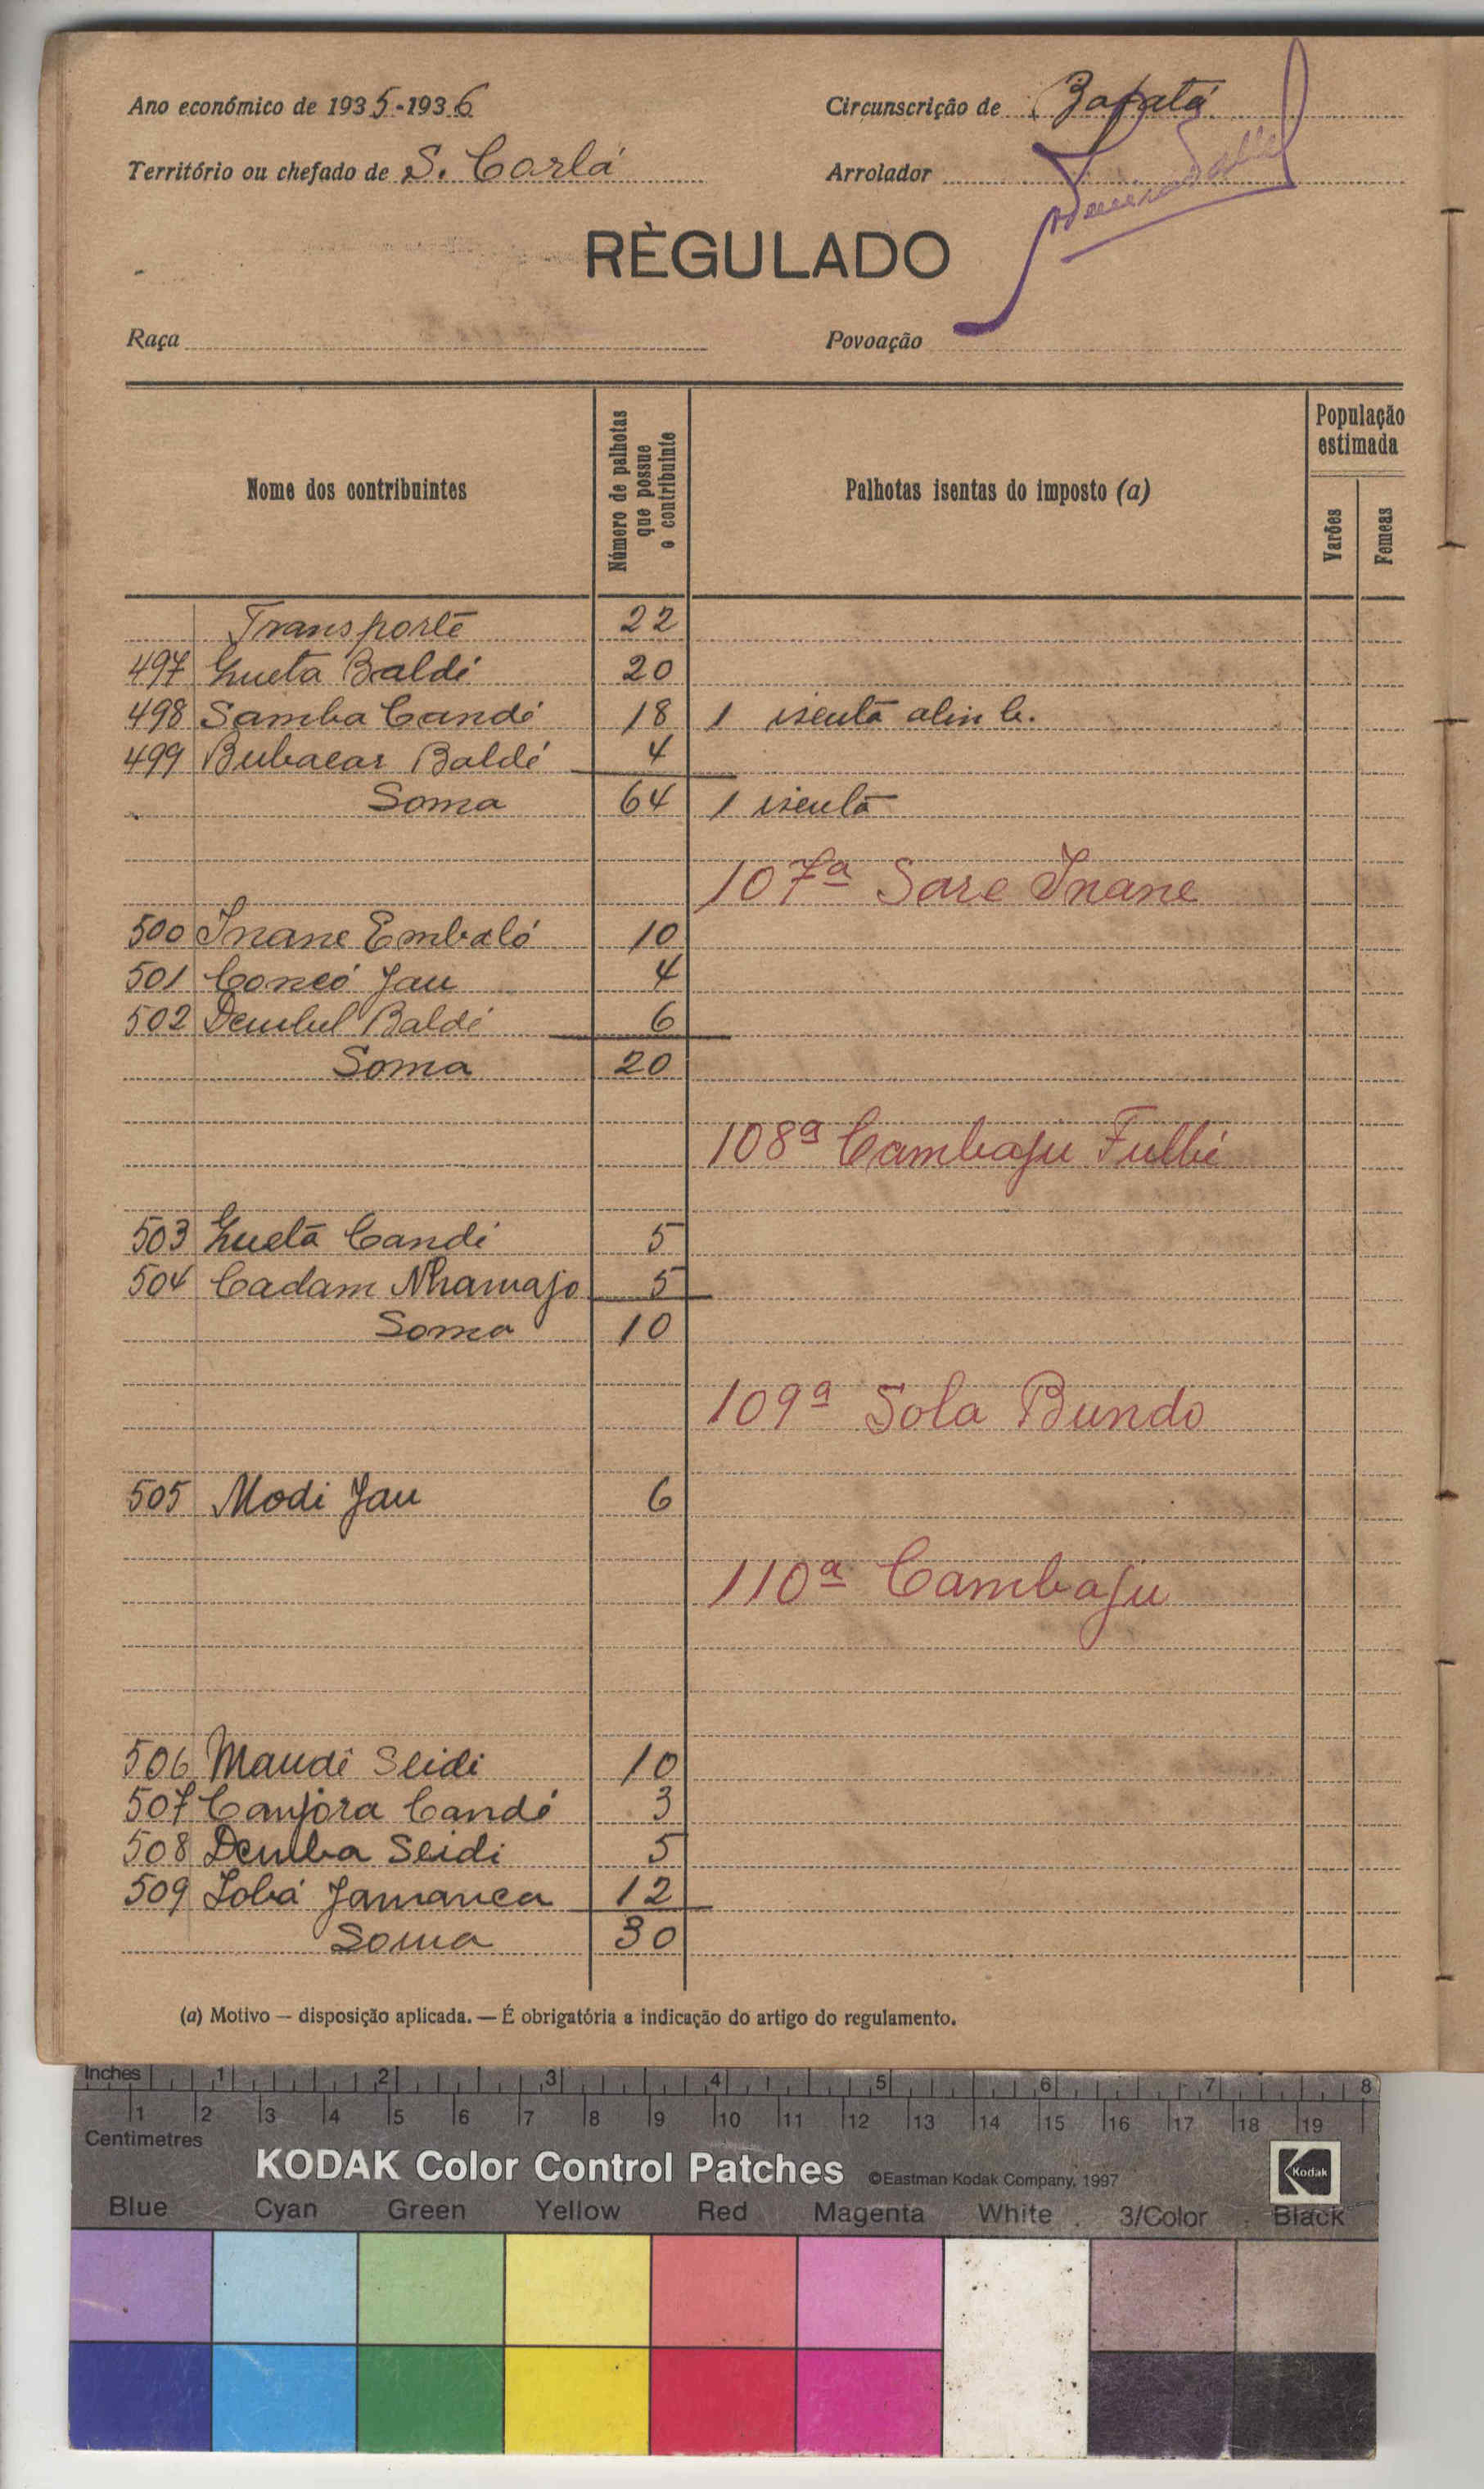 Ano económico de 1935-1936
Circunscrição de Bafatá
Território ou chefado de S. Corlá
Arrolador
RÈGULADO
Raça
Povoação
Nome dos contribuintes
Número de palhotas que possue o contribuinte
Palhotas isentas do imposto (a)
População estimada
Varões
Femeas
Transporte 22
497 Gueta Baldé 20
498 Samba Candé 18 1 isenta alin b.
499 Bubacar Baldé 4
Soma 64 1 isenta
107ª Sare Inane
500 Inane Embaló 10
501 Concó Jau 4
502 Dembel Baldé 6
Soma 20
108ª Cambaju Fulbé
503 Gueta Candé 5
504 Cadam Nhamajo 5
Soma 10
109ª Sola Bundo
505 Modi Jau 6
110ª Cambaju
506 Maudê Seidi 10
507 Canjora Candé 3
508 Demba Seidi 5
509 Jobá Jamanca 12
Soma 30
(a) Motivo — disposição aplicada. — É obrigatória a indicação do artigo do regulamento.
Inches 1 2 3 4 5 6 7 8
1 2 3 4 5 6 7 8 9 10 11 12 13 14 15 16 17 18 19
Centimetres
KODAK Color Control Patches ©Eastman Kodak Company, 1997 Kodak
Blue Cyan Green Yellow Red Magenta White 3/Color Black